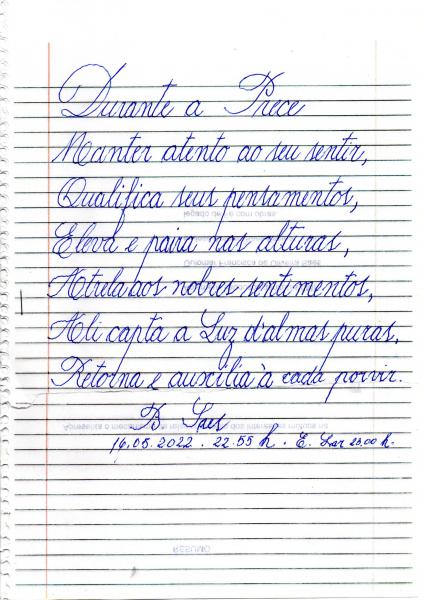 Durante a Prece
Manter atento ao seu sentir,
Qualifica seus pensamentos,
Eleva e paira nas alturas,
Atrela aos nobres sentimentos,
Ali capta a Luz d'almas puras,
Retorna e auxilia à cada porvir.
B Saes
16.05.2022 . 22:55 h. . E. Lar 23:00 h.
RESUMO